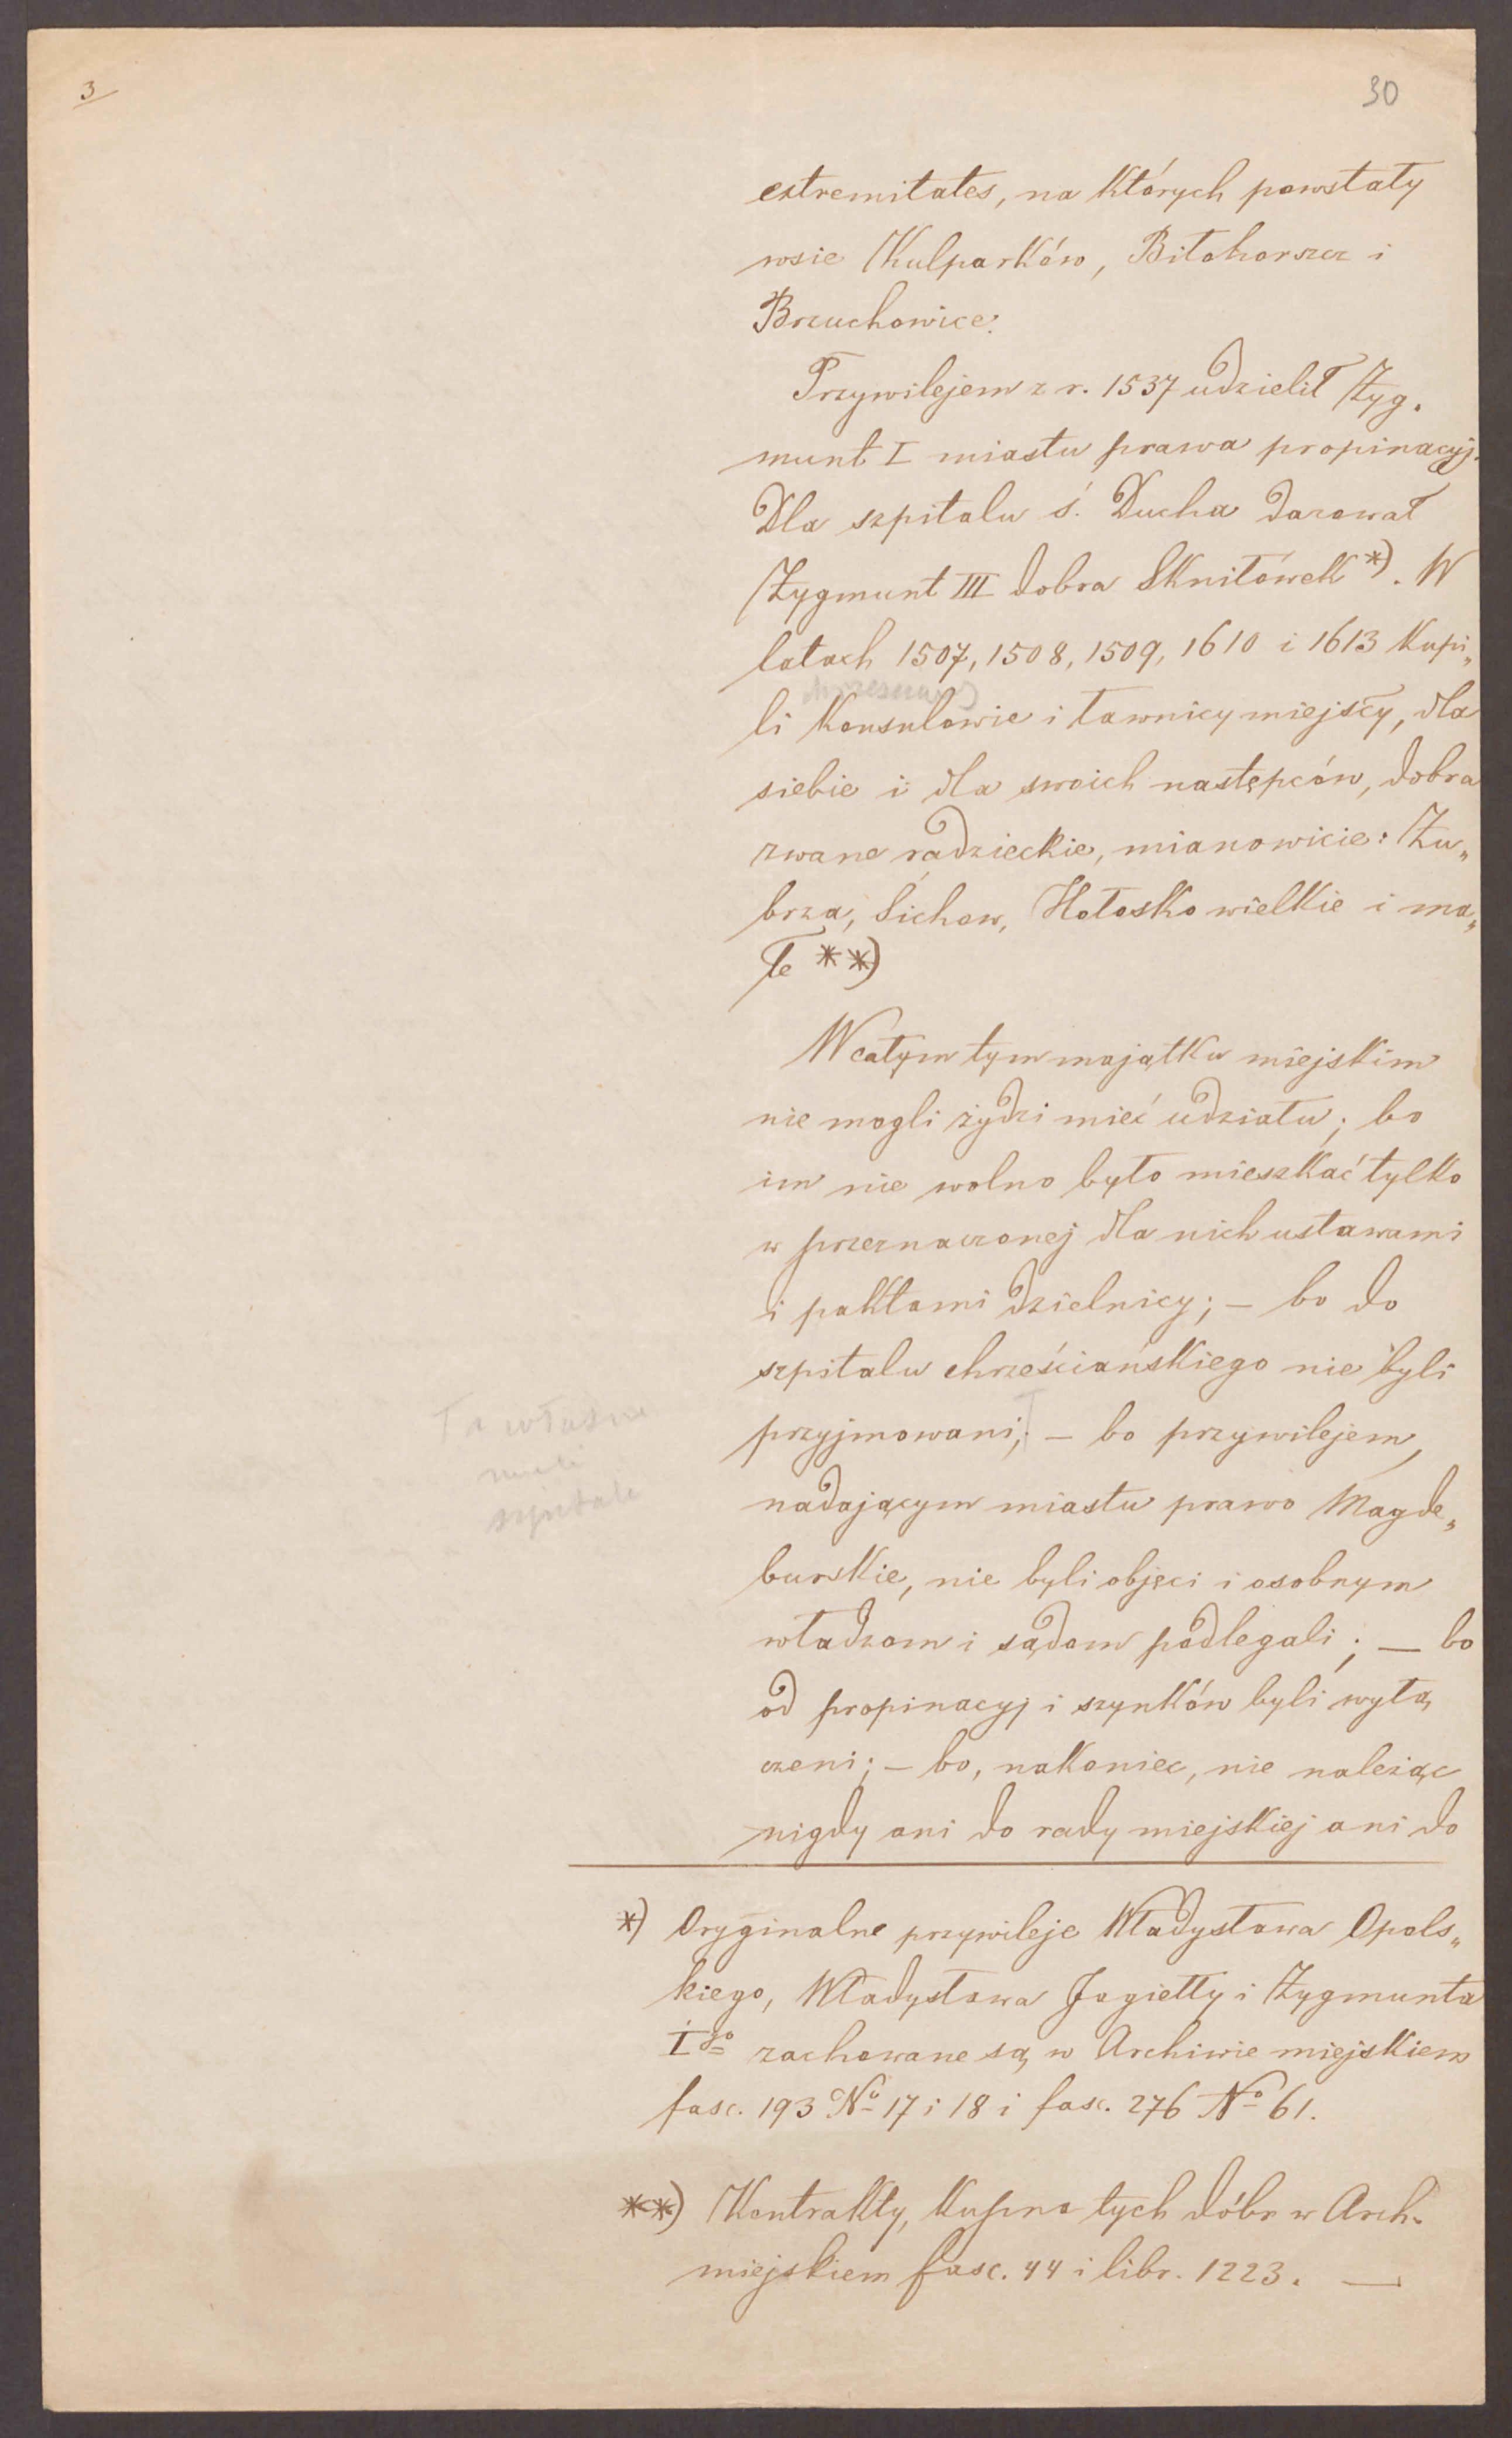 3
30
extremitates, na których powstały
wsie Kulparków, Biłohorszcz i
Brzuchowice.
Przywilejem z r. 1537 udzielił Zyg„
munt I miastu prawa propinacyj.
Dla szpitalu ś. Ducha darował
Zygmunt III dobra Skniłówek *). W
latach 1507, 1508, 1509, 1610 i 1613 kupi„
li Konsulowie i ławnicy miejscy, dla
siebie i dla swoich następców, dobra
zwane radzieckie, mianowicie: Zu„
brza, Sichow, Hołosko wielkie i ma„
łe **)
W całym tym majątku miejskim
nie mogli żydzi mieć udziału; bo
im nie wolno było mieszkać tylko
w przeznaczonej dla nich ustawami
i paktami dzielnicy; – bo do
szpitalu chrześciańskiego nie byli
przyjmowani; – bo przywilejem,
nadającym miastu prawo Magde„
burskie, nie byli objęci i osobnym
władzom i sądom podlegali; — bo
od propinacyj i szynków byli wyłą
czeni; – bo, nakoniec, nie należąc
nigdy ani do rady miejskiej ani do
To własne
mieli
szpitale
*) Oryginalne przywileje Władysława Opols„
kiego, Władysława Jagiełły i Zygmunta
Igo zachowane są w Archiwie miejskiem
fasc. 193 No 17 i 18 i fasc. 276 No 61.
**) Kontrakty, kupna tych dóbr w Arch.
miejskiem fasc. 44 i libr. 1223. —